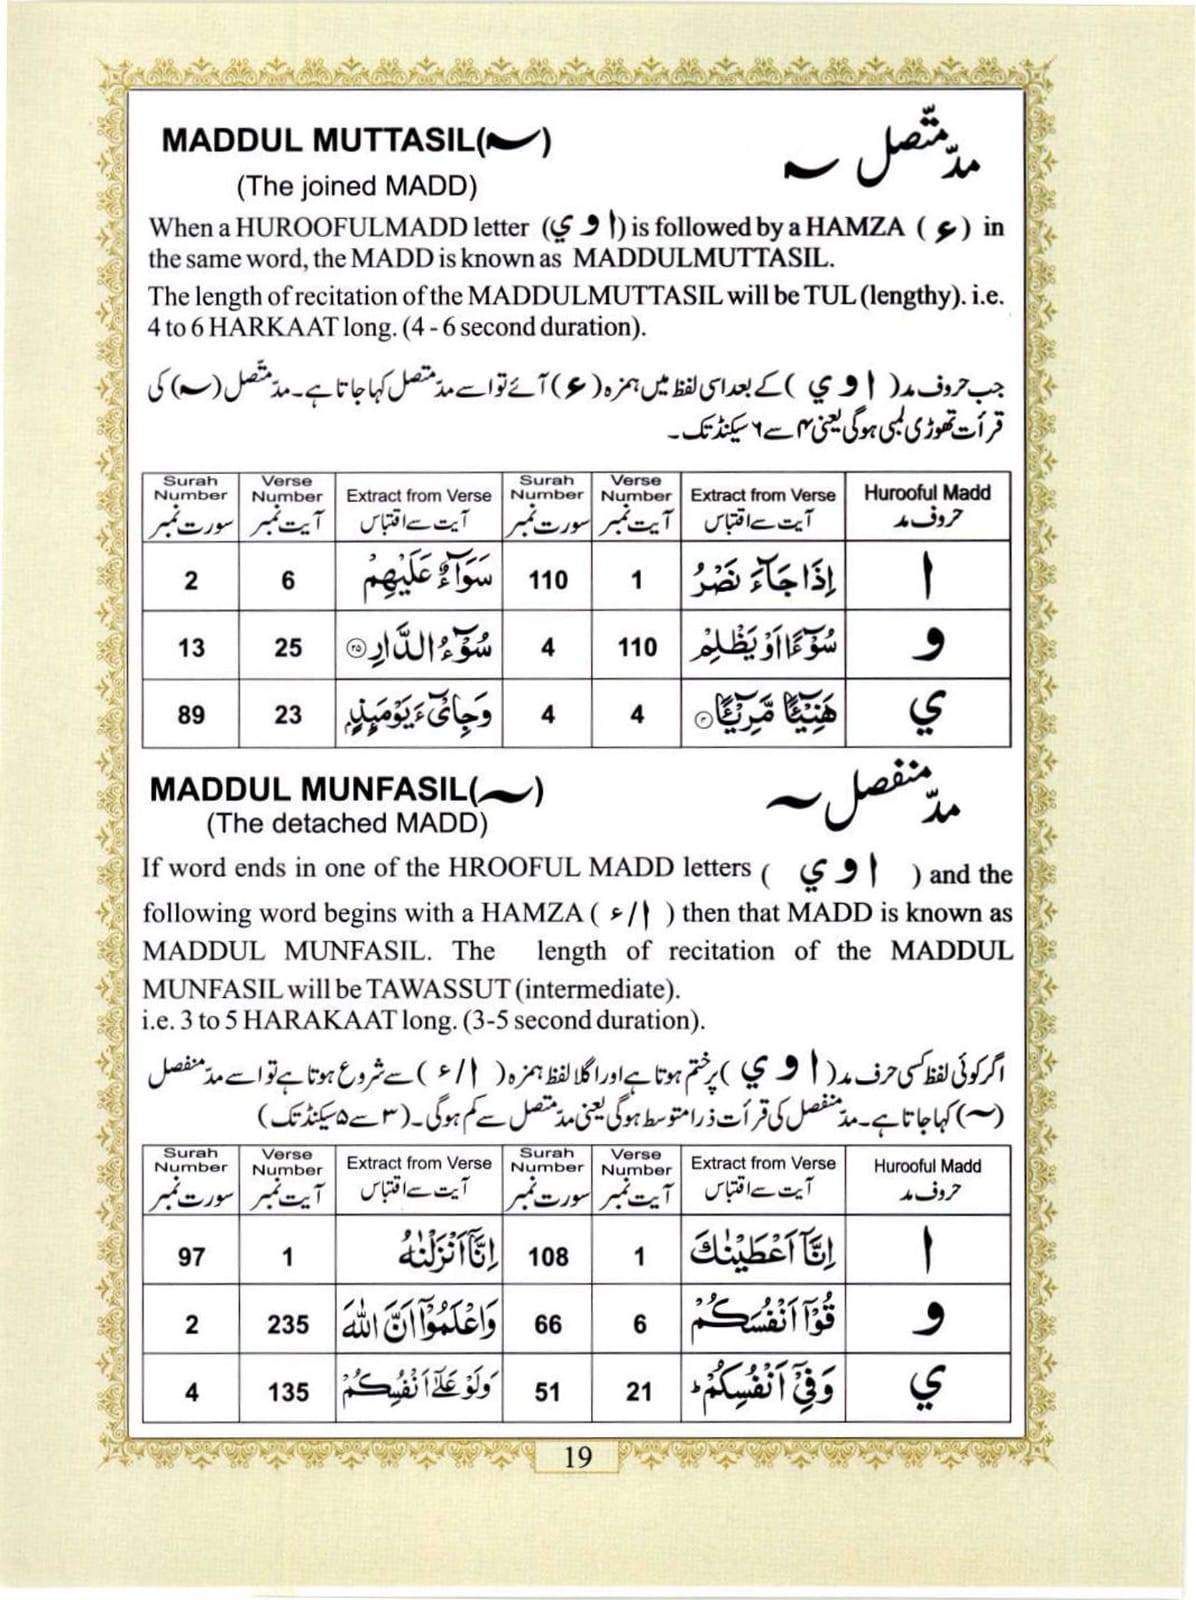 MADDUL MUTTASIL(~)
مدّ متّصل ~
(The joined MADD)
When a HUROOFULMADD letter (ا و ي) is followed by a HAMZA ( ء ) in
the same word, the MADD is known as MADDULMUTTASIL.
The length of recitation of the MADDULMUTTASIL will be TUL (lengthy). i.e.
4 to 6 HARKAAT long. (4 - 6 second duration).
جب حروف مد( ا و ي ) کے بعد اسی لفظ میں ہمزہ ( ء ) آئے تو اسے مدّ متصل کہا جاتا ہے۔ مدّ متّصل (~) کی
قرأت تھوڑی لمبی ہوگی یعنی ۴ سے ۶ سیکنڈ تک۔
Surah Number سورت نمبر | Verse Number آیت نمبر | Extract from Verse آیت سے اقتباس | Surah Number سورت نمبر | Verse Number آیت نمبر | Extract from Verse آیت سے اقتباس | Hurooful Madd حروف مد
2 | 6 | سَوَآءٌ عَلَيْهِمْ | 110 | 1 | اِذَا جَآءَ نَصْرُ | ا
13 | 25 | سُوْٓءُ الدَّارِ ۲۵ | 4 | 110 | سُوْٓءًا اَوْ يَظْلِمْ | و
89 | 23 | وَجِایْٓءَ يَوْمَىِٕذٍۭ | 4 | 4 | هَنِيْٓـًٔا مَّرِيْٓـًٔا ۴ | ي
MADDUL MUNFASIL(~)
مدّ منفصل ~
(The detached MADD)
If word ends in one of the HROOFUL MADD letters ( ا و ي ) and the
following word begins with a HAMZA ( ا/ء ) then that MADD is known as
MADDUL MUNFASIL. The length of recitation of the MADDUL
MUNFASIL will be TAWASSUT (intermediate).
i.e. 3 to 5 HARAKAAT long. (3-5 second duration).
اگر کوئی لفظ کسی حرف مد( ا و ي ) پر ختم ہوتا ہے اور اگلا لفظ ہمزہ ( ا/ء ) سے شروع ہوتا ہے تو اسے مدّ منفصل
(~) کہا جاتا ہے۔ مدّ منفصل کی قرأت ذرا متوسط ہوگی یعنی مدّ متصل سے کم ہوگی۔ (۳ سے ۵ سیکنڈ تک)
Surah Number سورت نمبر | Verse Number آیت نمبر | Extract from Verse آیت سے اقتباس | Surah Number سورت نمبر | Verse Number آیت نمبر | Extract from Verse آیت سے اقتباس | Hurooful Madd حروف مد
97 | 1 | اِنَّآ اَنْزَلْنٰهُ | 108 | 1 | اِنَّآ اَعْطَيْنٰكَ | ا
2 | 235 | وَاعْلَمُوْٓا اَنَّ اللّٰهَ | 66 | 6 | قُوْٓا اَنْفُسَكُمْ | و
4 | 135 | وَلَوْ عَلٰٓى اَنْفُسِكُمْ | 51 | 21 | وَفِيْٓ اَنْفُسِكُمْ ؕ | ي
19